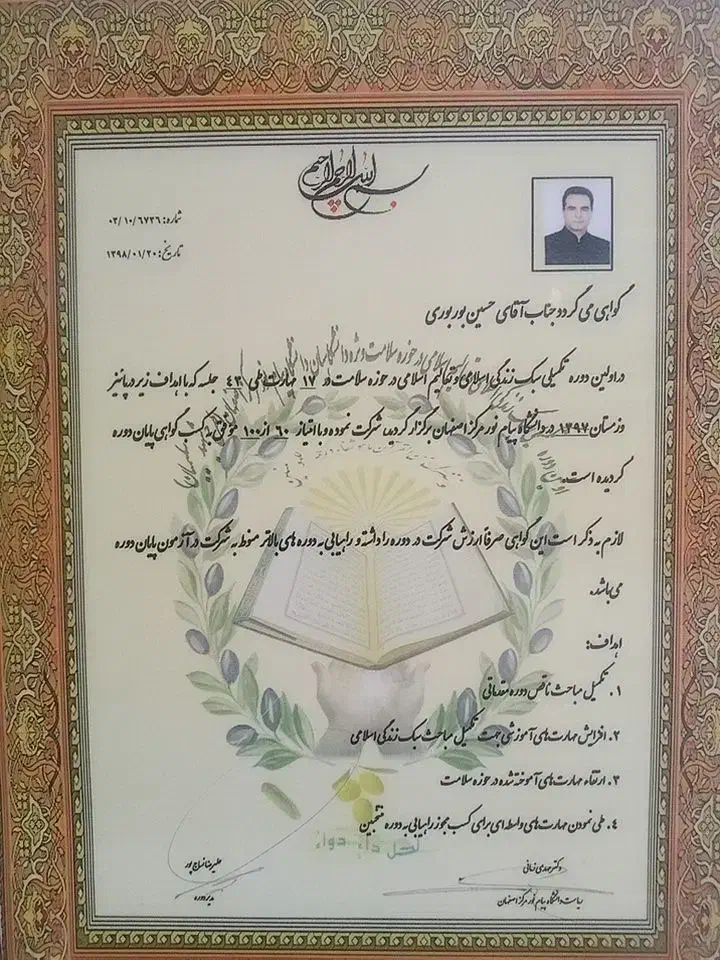 بسم الله الرحمن الرحیم
شماره: ۰۳/۱۰/۶۷۳۶
تاریخ: ۱۳۹۸/۰۱/۲۰
گواهی می گردد جناب آقای حسین بوربوری
در اولین دوره تکمیلی سبک زندگی اسلامی و تعالیم اسلامی در حوزه سلامت در ۱۷ مهارت طی ۴۳ جلسه که با اهداف زیر در پائیز
و زمستان ۱۳۹۷ در دانشگاه پیام نور مرکز اصفهان برگزار گردید، شرکت نموده و با امتیاز ۶۰ از ۱۰۰ موفق به کسب گواهی پایان دوره
گردیده است.
لازم به ذکر است این گواهی صرفاً ارزش شرکت در دوره را داشته و راهیابی به دوره های بالاتر منوط به شرکت در آزمون پایان دوره
می باشد.
اهداف:
۱. تکمیل مباحث ناقص دوره مقدماتی
۲. افزایش مهارت های آموزشی جهت تکمیل مباحث سبک زندگی اسلامی
۳. ارتقاء مهارت های آموخته شده در حوزه سلامت
۴. طی نمودن مهارت های واسطه ای برای کسب مجوز راهیابی به دوره منتجبین
لکل داء دواء
دکتر مهدی زمانی
ریاست دانشگاه پیام نور مرکز اصفهان
علیرضا نساج پور
مدیر دوره